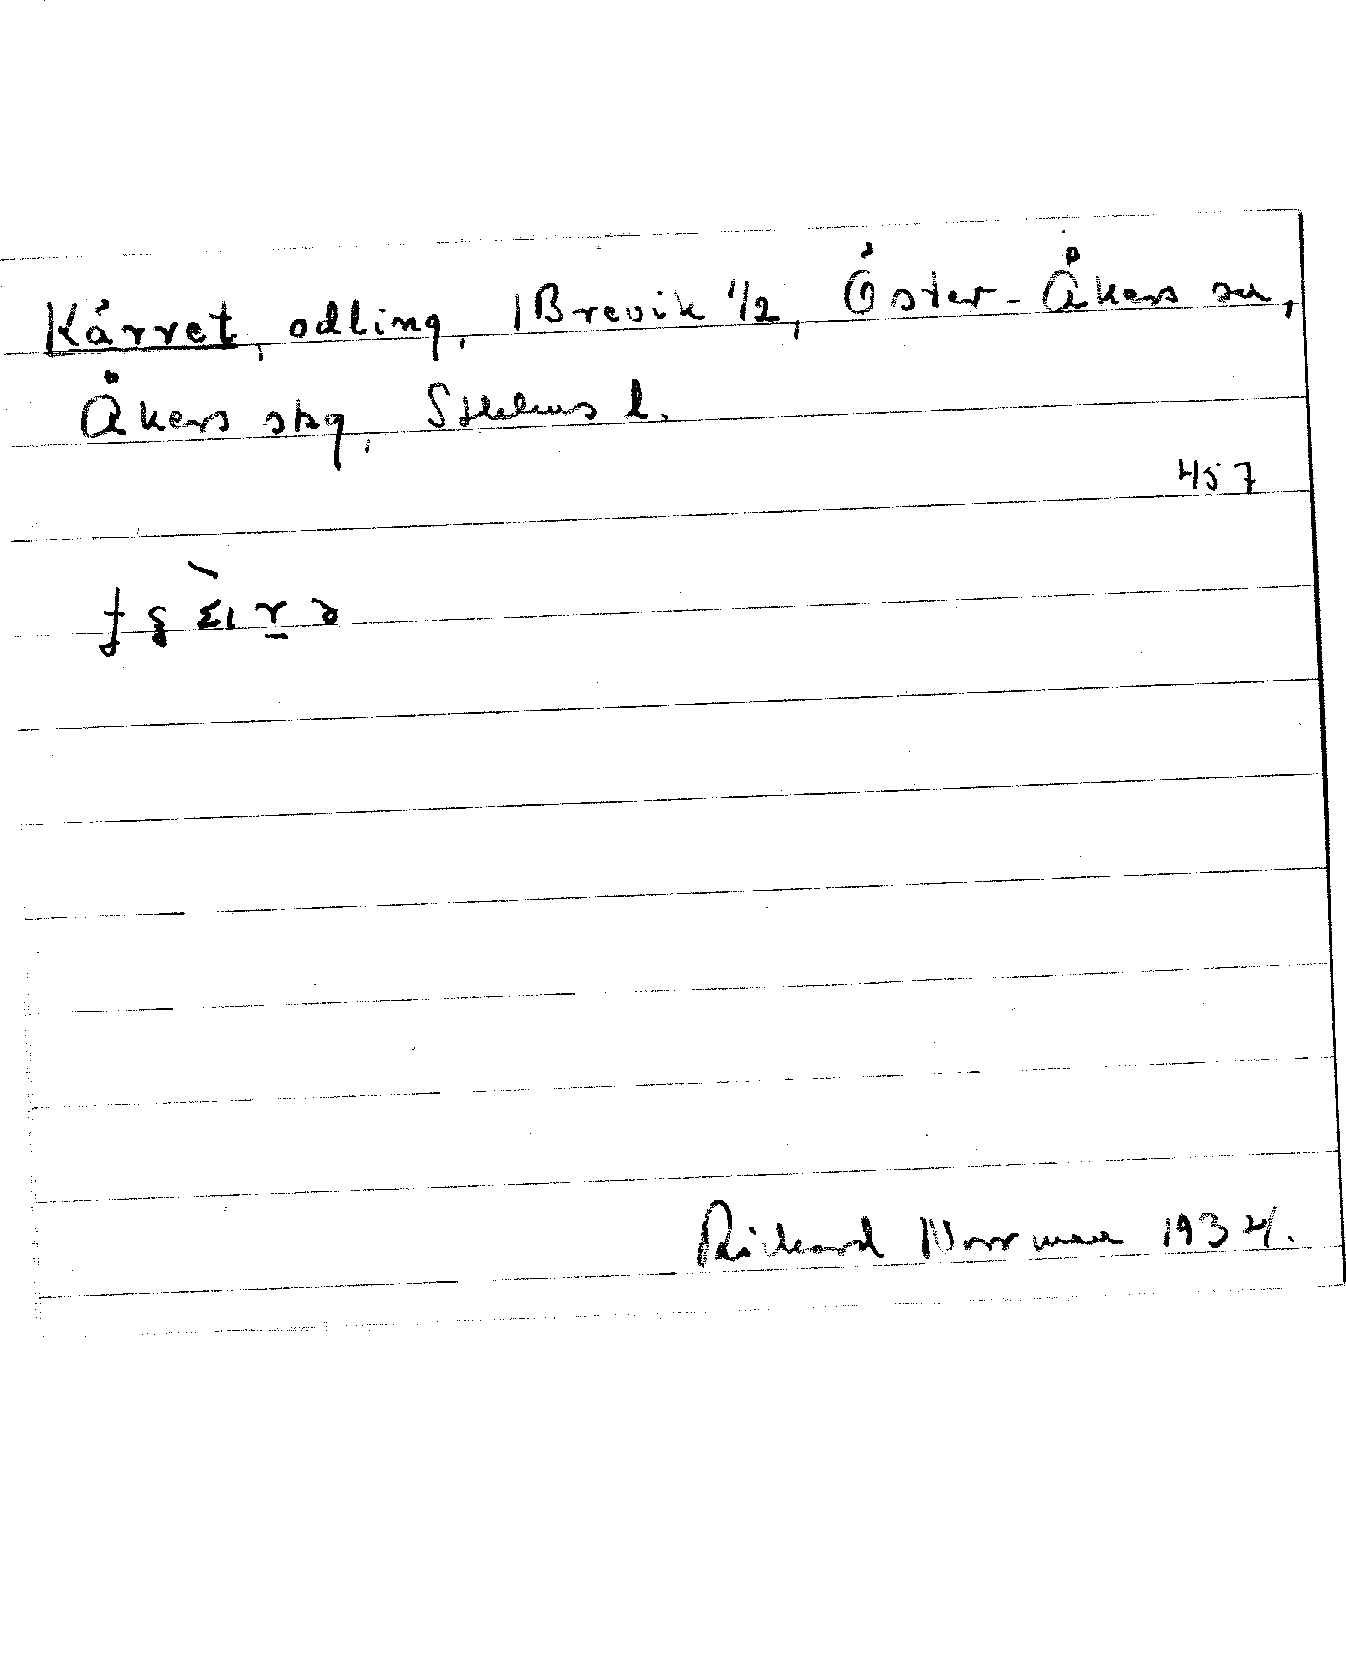 Kärret, odling, Brevik 1/2, Öster-Åkers sn,
Åkers skg, Sthlms l.
457
Rickard Norrman 1934.